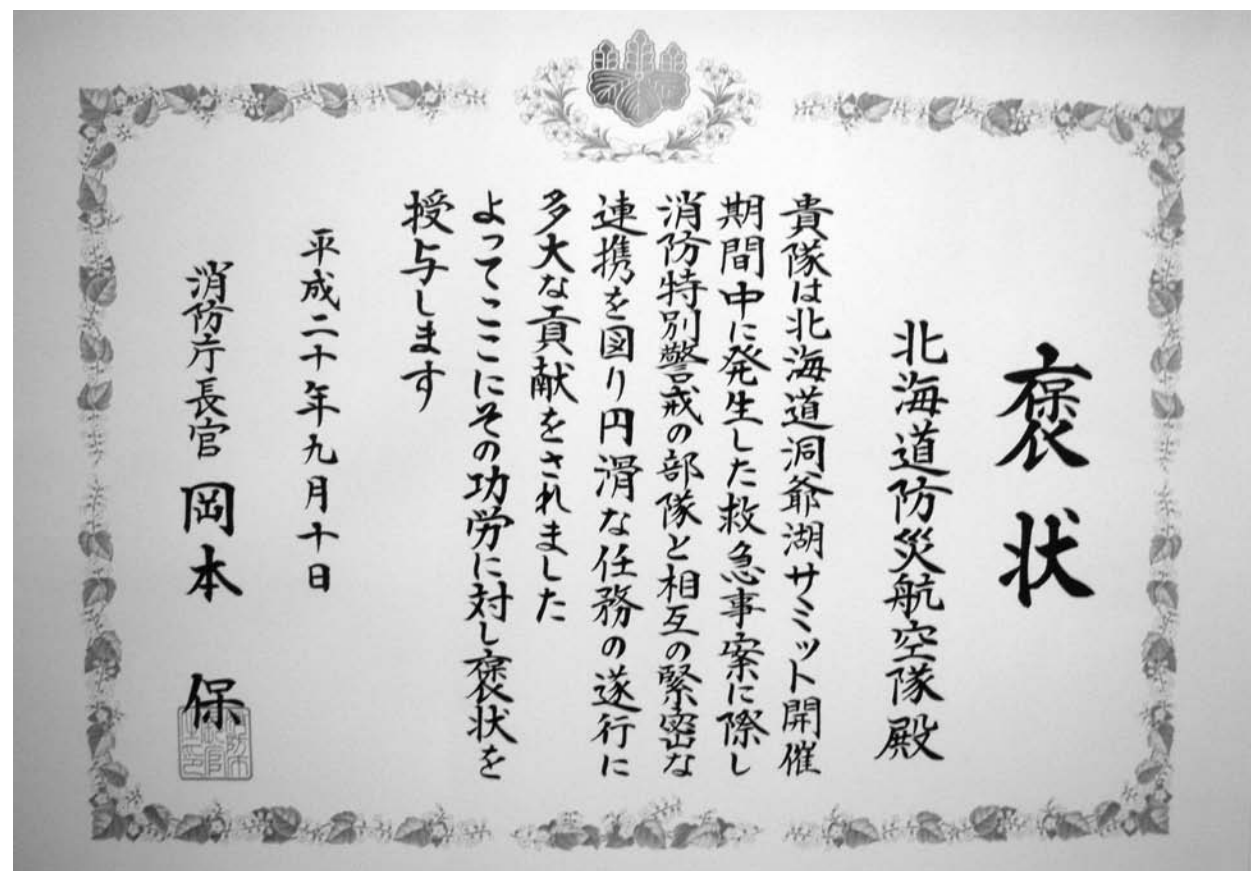 褒状
北海道防災航空隊殿
貴隊は北海道洞爺湖サミット開催
期間中に発生した救急事案に際し
消防特別警戒の部隊と相互の緊密な
連携を図り円滑な任務の遂行に
多大な貢献をされました
よってここにその功労に対し褒状を
授与します
平成二十年九月十日
消防庁長官 岡本 保